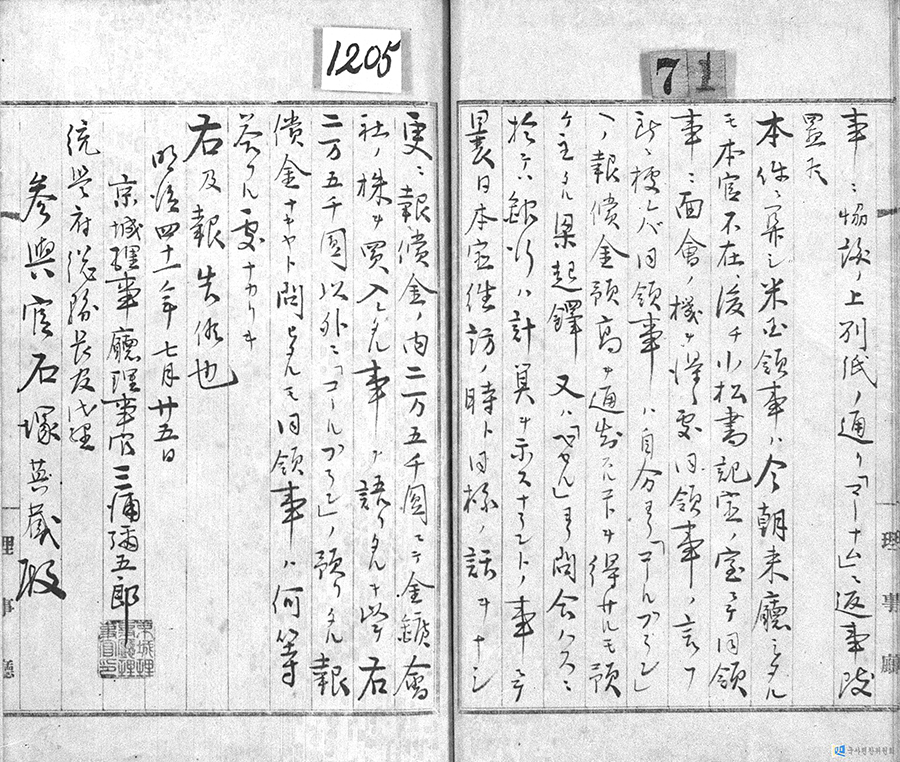 1205
71
事ニ協議ノ上別紙ノ通リ「マーナム」ニ返事致
置候
本件ニ関シ米国領事ハ今朝来廳シタル
モ本官不在ノ後チ小松書記官ノ室ニテ同領
事ニ面會ノ機ヲ得タル処同領事ノ言フ
所ニ拠レバ同領事ハ自分ヨリ「コールブラン」
ヘノ報償金預高ヲ通知スルコトヲ得サルモ預
ケ主タル梁起鐸又ハ「ベセル」ヨリ問合ハスニ
於テハ銀行ハ計算ヲ示スナラントノ事ニテ
曩日本官往訪ノ時ト同様ノ話ヲナシ
更ニ報償金ノ内二万五千圓ニテ金鑛會
社ノ株ヲ買入レタル事ヲ語リタルニ付右
二万五千圓以外ニ「コールブラン」ノ預リタル報
償金ナキヤト問ヒタルモ同領事ハ何等
答フル処ナカリキ
右及報告候也
明治四十一年七月廿五日
京城理事廳理事官三浦彌五郎
京城理事廳理事官之印
統監府総務長官代理
参與官石塚英蔵殿
理事廳
理事廳
국사편찬위원회